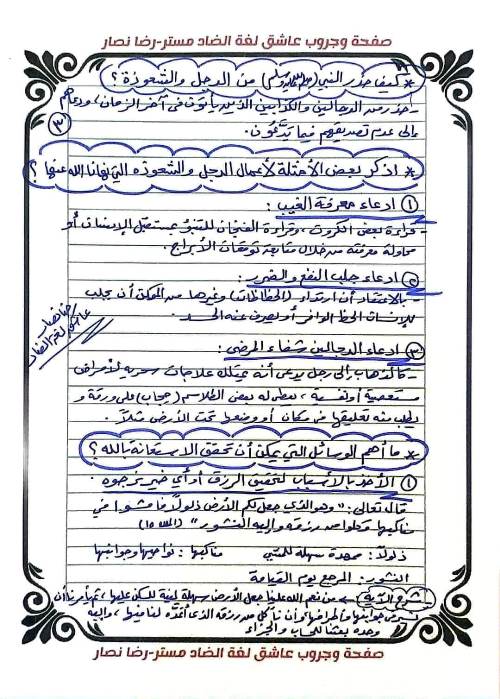 صفحة وجروب عاشق لغة الضاد مستر-رضا نصار
* كيف حذر النبي (صلى الله عليه وسلم) من الدجل والشعوذة ؟
- حذر من الدجالين والكذابين الذين يأتون في آخر الزمان، ودعاهم
إلى عدم تصديقهم فيما يدَّعُون.
٣
* اذكر بعض الأمثلة لأعمال الدجل والشعوذة التي نهانا الله عنها ؟
١ ادعاء معرفة الغيب :
- قراءة بعض الكروت، وقراءة الفنجان للتنبؤ بمستقبل الإنسان أو
محاولة معرفته من خلال متابعة توقعات الأبراج.
٢ ادعاء جلب النفع والضرر :
- بالاعتقاد أن ارتداء (الحظاظات) وغيرها من الممكن أن يجلب
للإنسان الحظ الوافر أو يصرف عنه الحسد.
رضا نصار
عاشق لغة الضاد
٣ ادعاء الدجالين شفاء المرضى :
- كالذهاب إلى رجل يدعى أنه يمتلك علاجات سحرية لأمراض
مستعصية أو نفسية، يعطى له بعض الطلاسم (حجاب) على ورقة و
يطلب منه تعليقها في مكان أو وضعها تحت الأرض مثلاً.
* ما أهم الوسائل التي يمكن أن تحقق الاستعانة بالله ؟
١ الأخذ بالأسباب لتحقيق الرزق أو أي خير نرجوه.
قال تعالى: "هو الذي جعل لكم الأرض ذلولاً فامشوا في
مناكبها وكلوا من رزقه وإليه النشور" (الملك ١٥)
ذلولاً : ممهدة سهلة للمشي مناكبها : نواحيها وجوانبها
النشور : المرجع يوم القيامة
شرح الآية ← من نعم الله علينا جعل الأرض سهلة لينة للسكن عليها، ثم أمرنا أن
جوانبها وأطرافها وأن نأكل من رزقه الذي أعده لنا فيها، وإليه
وحده بعثنا للحساب والجزاء
صفحة وجروب عاشق لغة الضاد مستر-رضا نصار